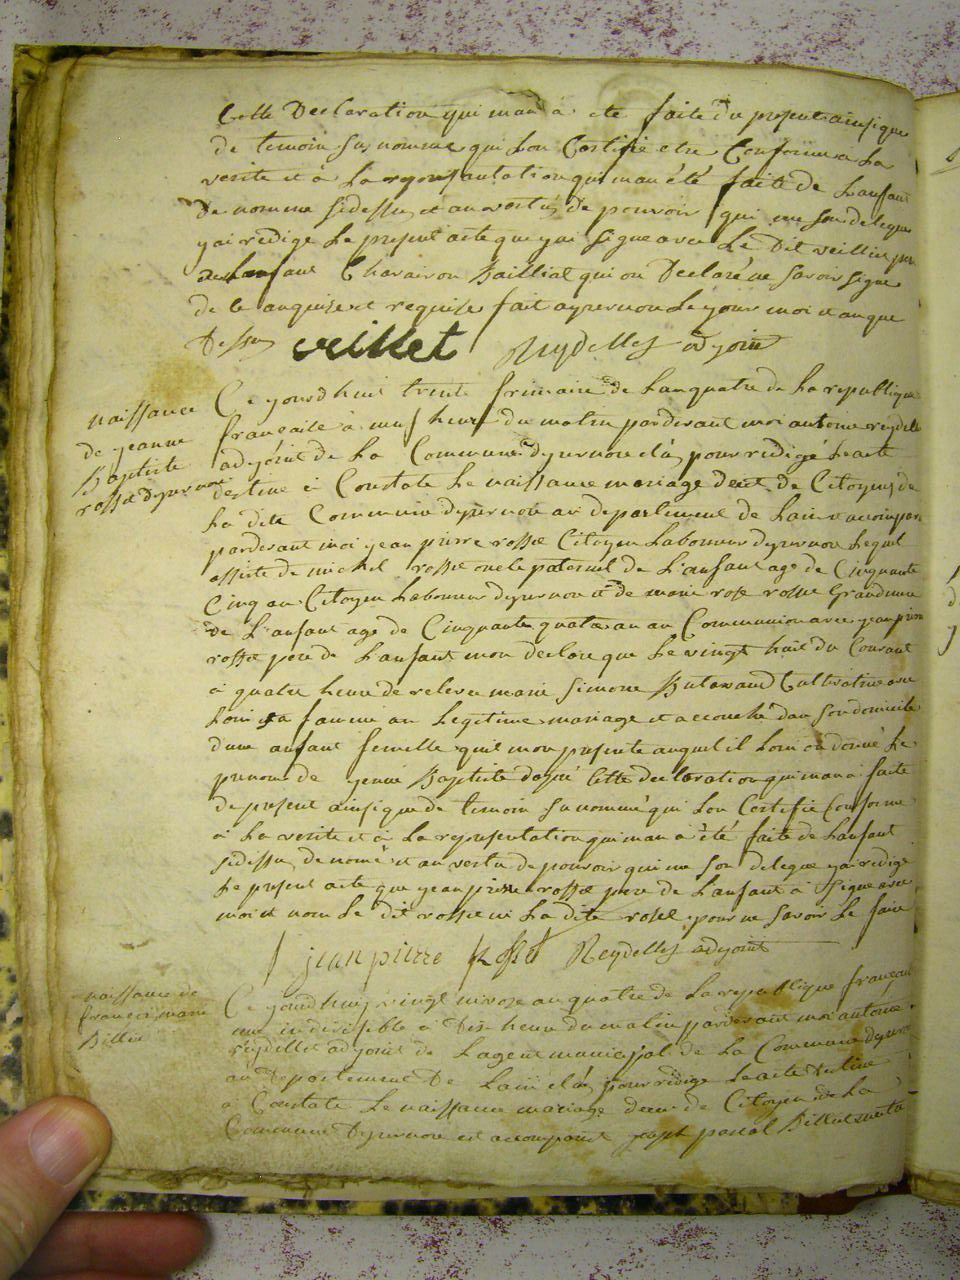 Cette Declaration qui man a ete faite du present ainsi que
de temoin su nomme qui Lon Certifie etre Conforme a La
verite et a La representation qui man été faite de Lanfant
De nomme sidessu et an vertu de pouvoir qui me son delegue
yai redige Le present acte que yai signe avec Le Dit veillet pere
de Lanfant Baillial qui on Declaré ne savoir signe
de le anquise et requise fait a yzernore Le your moi et an que
Dessu veillet Reydellet adjoint
naissance
de jeanne
Baptiste
rosse dyzernore
Ce yourdhuit trente frimaire de Lan quatre de La republique
francaise à neuf heure du matin pardevant moi antoine reydellet
adjoint de La Commune dyzernore élû pour redigé Le acte
destine à Constate Le naissance mariage decet de Citoyens de
La dite Commune dyzernore au departement de Lain et
pardevant moi jean pierre rosse Citoyen Laboureur dyzernore Lequel
assiste de michel rosse oncle paternel de L'anfant age de Cinquante
Cinq an Citoyen Laboureur dyzernore et de marie rose rosse Grandmere
de L'anfant age de Cinquante quatre an au Commune avec jean pierre
rosse pere de Lanfant mon declare que Le vingt huit du Courant
à quatre heure de relevee marie Simone Cultivatrice avec
Loui sa famme an Legitime mariage et accouché dan son domicile
dune anfant femelle quil mon presente auquel il Loui on donné Le
prenom de Baptiste Cette declaration qui man à faite
de present ainsi que de temoin su nommé qui Lon Certifie Conforme
à La verite et à La representation qui man a été faite de Lanfant
sidessu de nomé et an vertu de pouvoir qui me son delegue yai redigé
Le present acte que jean pierre rosse pere de Lanfant à signe avec
moi et nom Le dit rosse ni La dite rosse pour ne savoir Le faire
jean pierre Rosset Reydellet adjoint
naissance de
marie
Billiet
Ce yourdhuy vingt nivose an quatre de La republique francaise
une indivisible à Dix heure du matin pardevant moi antoine
reydellet adjoint de Lagent municipal de La Commune dyzernore
au Departement De Lain élû pour redigé Le acte destine
à Constate Le naissance mariage decet de Citoyen de La
Commune Dyzernore est accomparut joseph pascal Billiet